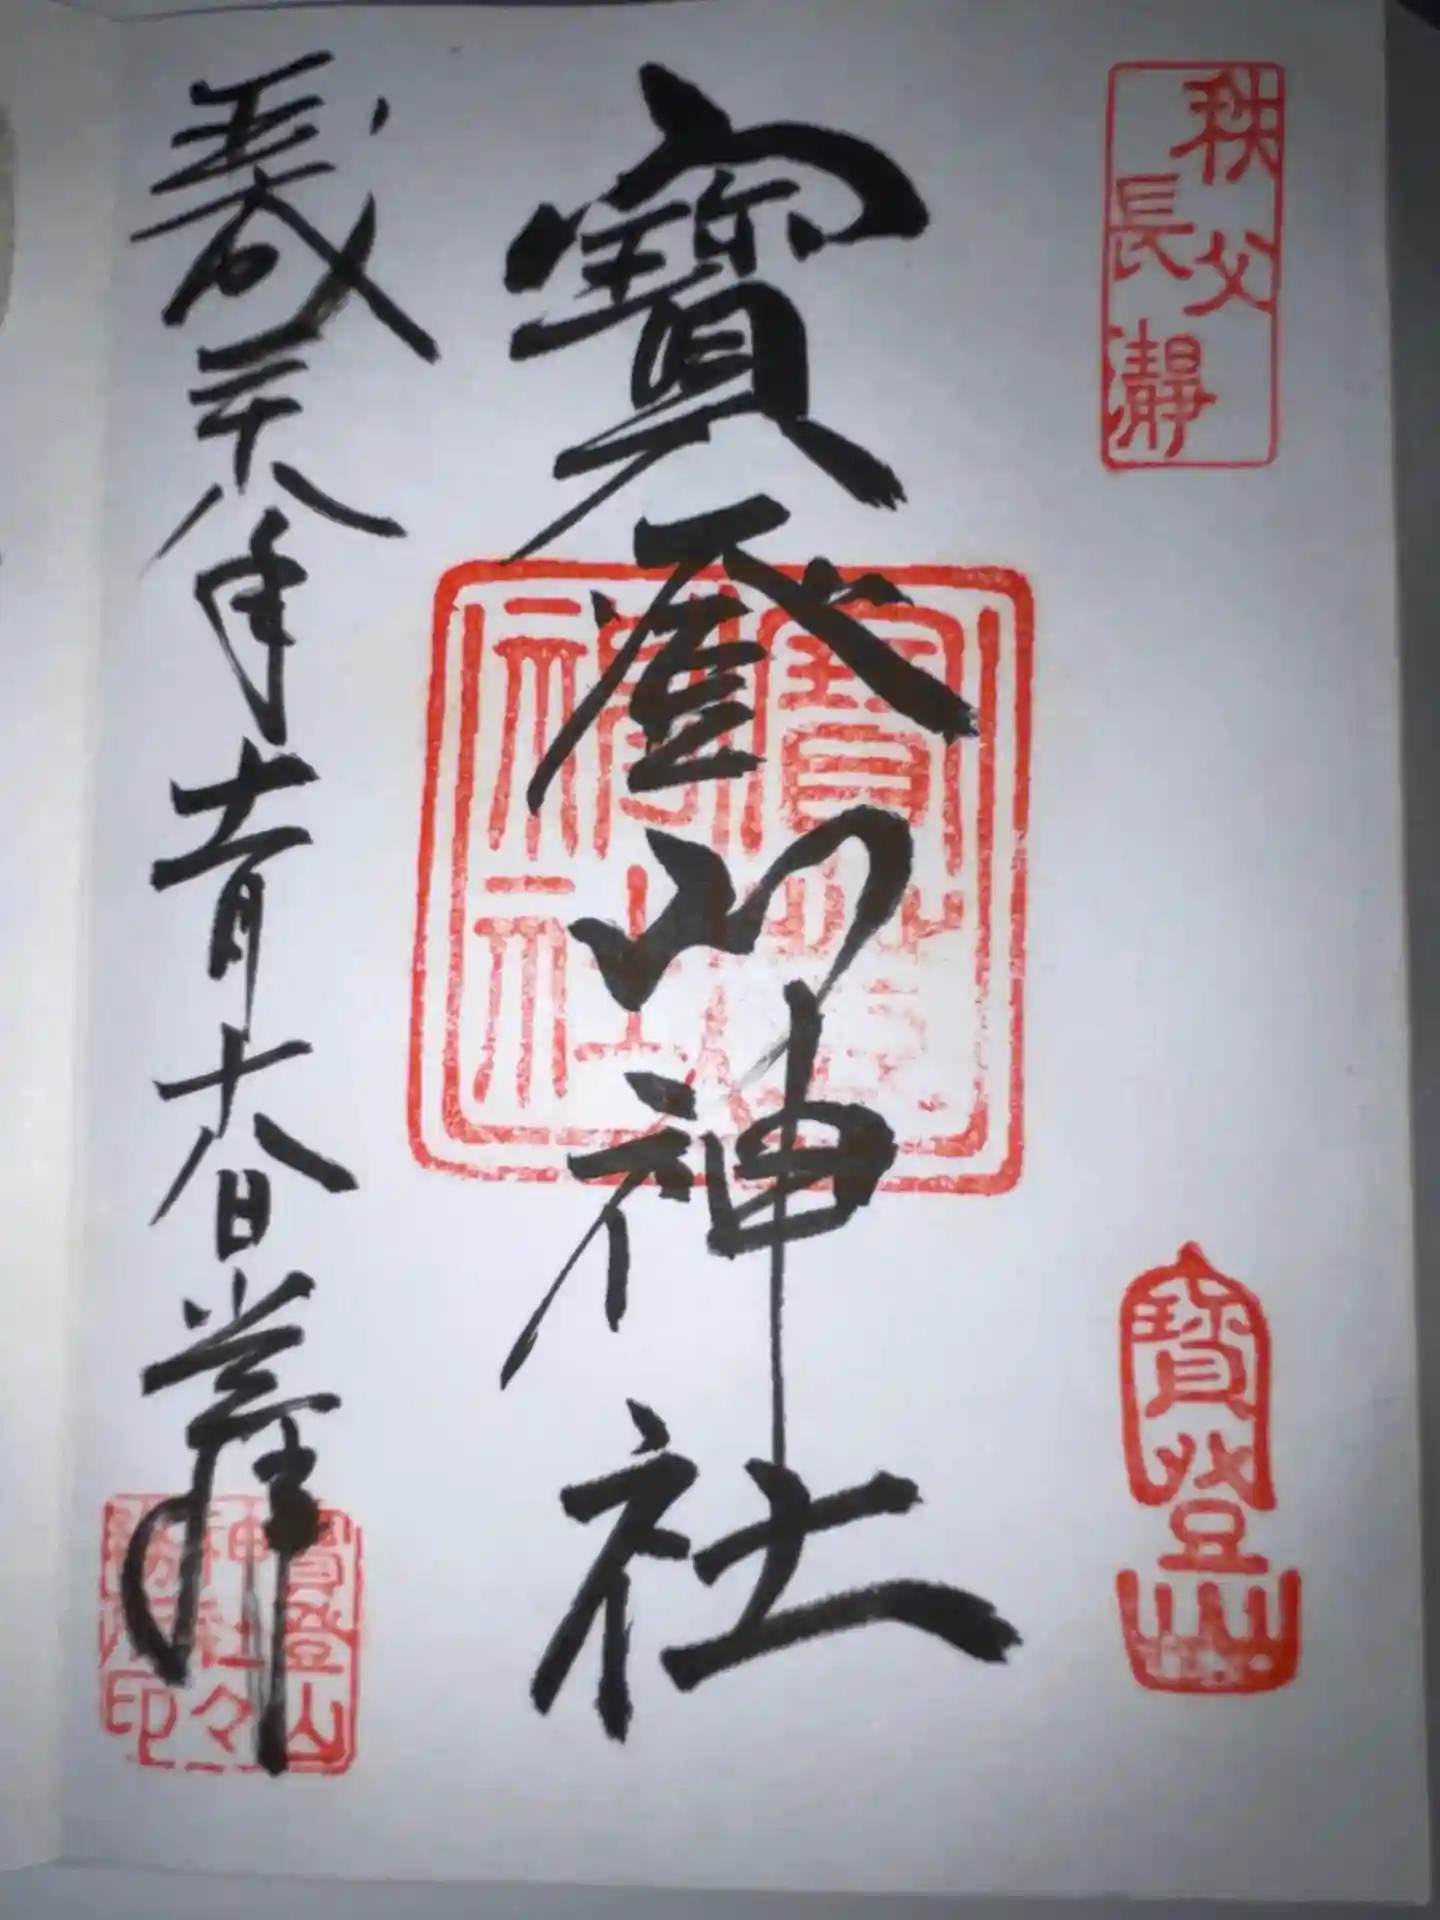 秩父
長瀞
寶登山
寶登山神社
寶登山
神社
平成二十八年十一月十八日
寶登山
神社々
務所印